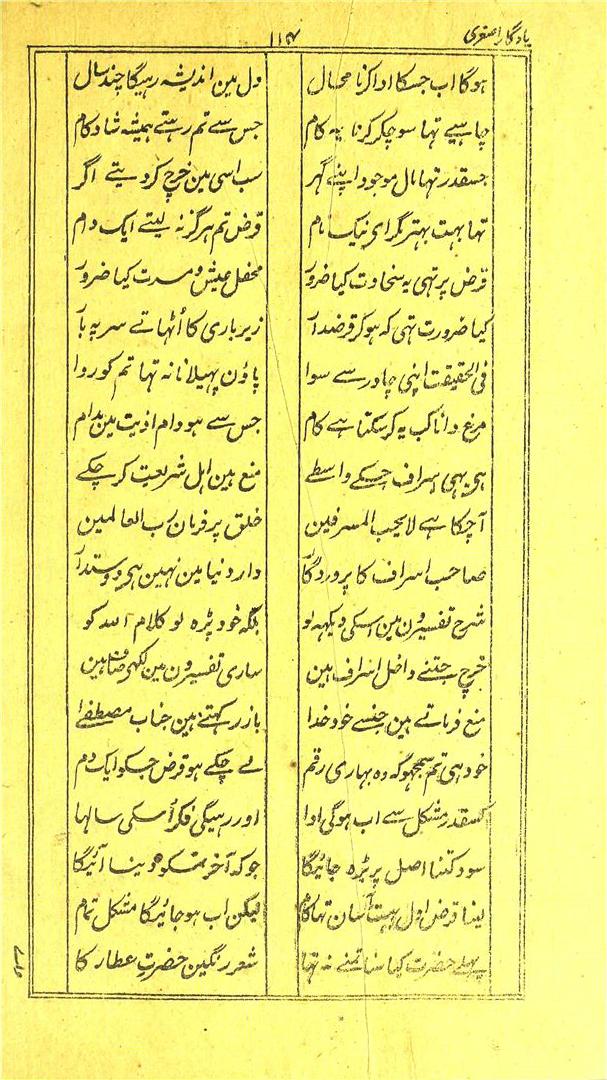 یادگار اصغری ۱۱۴
ہوگا اب جسکا ادا کرنا محال دل مین اندیشہ رہیگا چند سال
چاہیے تہا سوچکر کرنا یہ کام جس سے تم رہتے ہمیشہ شاد کام
جسقدر تہا مال موجود اپنے گہر سب اسی مین خرچ کر دیتے اگر
تہا بہت بہتر مگر ای نیک نام قرض تم ہرگز نہ لیتے ایک دام
قرض پر تہی یہ سخاوت کیا ضرور محفل عیش و مسرت کیا ضرور
کیا ضرورت تہی کہ ہوکر قرضدار زیر باری کا اُٹہاتے سر پہ بار
فی الحقیقت اپنی چادر سے سوا پاؤن پہیلانا نہ تہا تم کو روا
مرغ دانا کب یہ کر سکتا ہے کام جس سے ہو دام اذیت مین مدام
ہی یہی اسراف جسکے واسطے منع ہین اہل شریعت کر چکے
آچکا ہے لا یحب المسرفین خلق پر فرمان رب العالمین
صاحب اسراف کا پروردگار دار دنیا مین نہین ہی دوستدار
شرح تفسیرون مین اسکی دیکہہ لو بلکہ خود پڑہ لو کلام اللہ کو
خرچ جتنے داخل اسراف ہین ساری تفسیرون مین لکہی صاف ہین
منع فرماتے ہین جنسے خود خدا باز رکہتے ہین جناب مصطفےٰ
خود ہی تم سمجہو کہ وہ بہاری رقم لے چکے ہو قرض جسکو ایک دم
کسقدر مشکل سے اب ہوگی ادا اور رہیگی فکر اُسکی سالہا
سود کتنا اصل پر بڑہ جائیگا جو کہ آخر تمکو دینا آئیگا
لینا قرض اول بہت آسان تہا کام لیکن اب ہو جائیگا مشکل تمام
پہلے حضرت کیا سنا تمنے نہ تہا شعر رنگین حضرت عطار کا